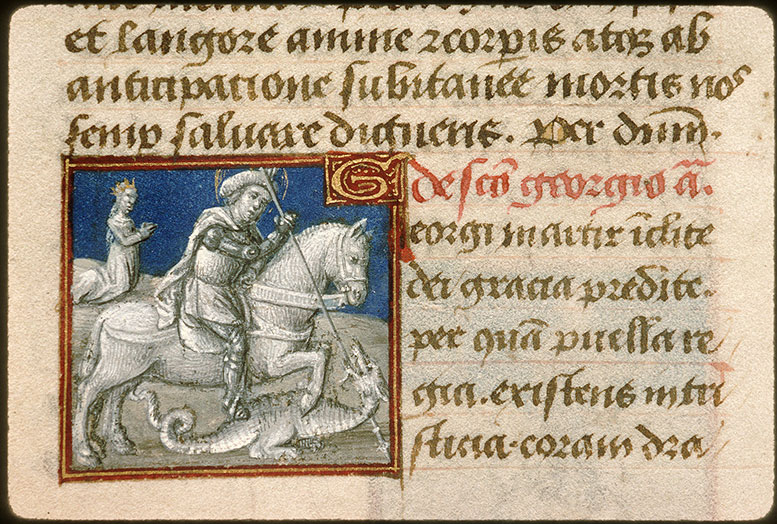 et langore anime ⁊ corꝑis atqꝫ ab
anticipatione subitanee mortis nos
semꝑ saluare digneris. Per dnm̄.
de scō georgio ā.
Georgi martir īclite
dei gracia predite.
per quā puella re
gia. existens in tri
sticia. coram dra